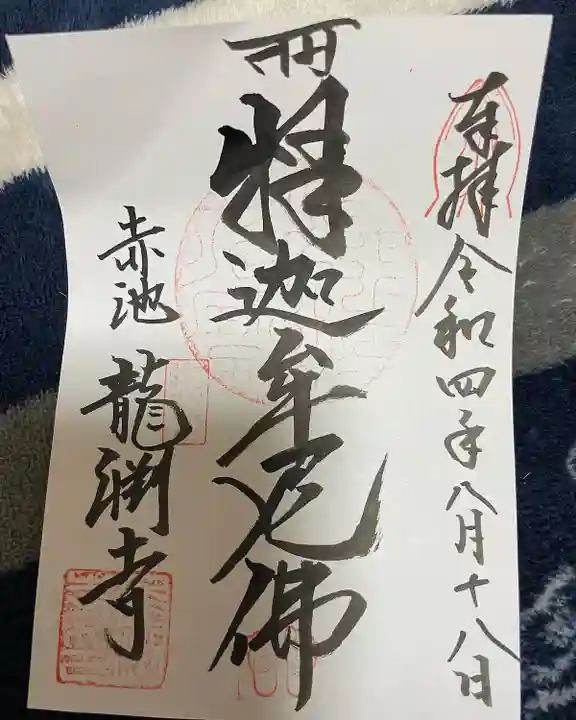 奉拝 令和四年八月十八日
南無
釋迦牟尼佛
赤池 龍渕寺